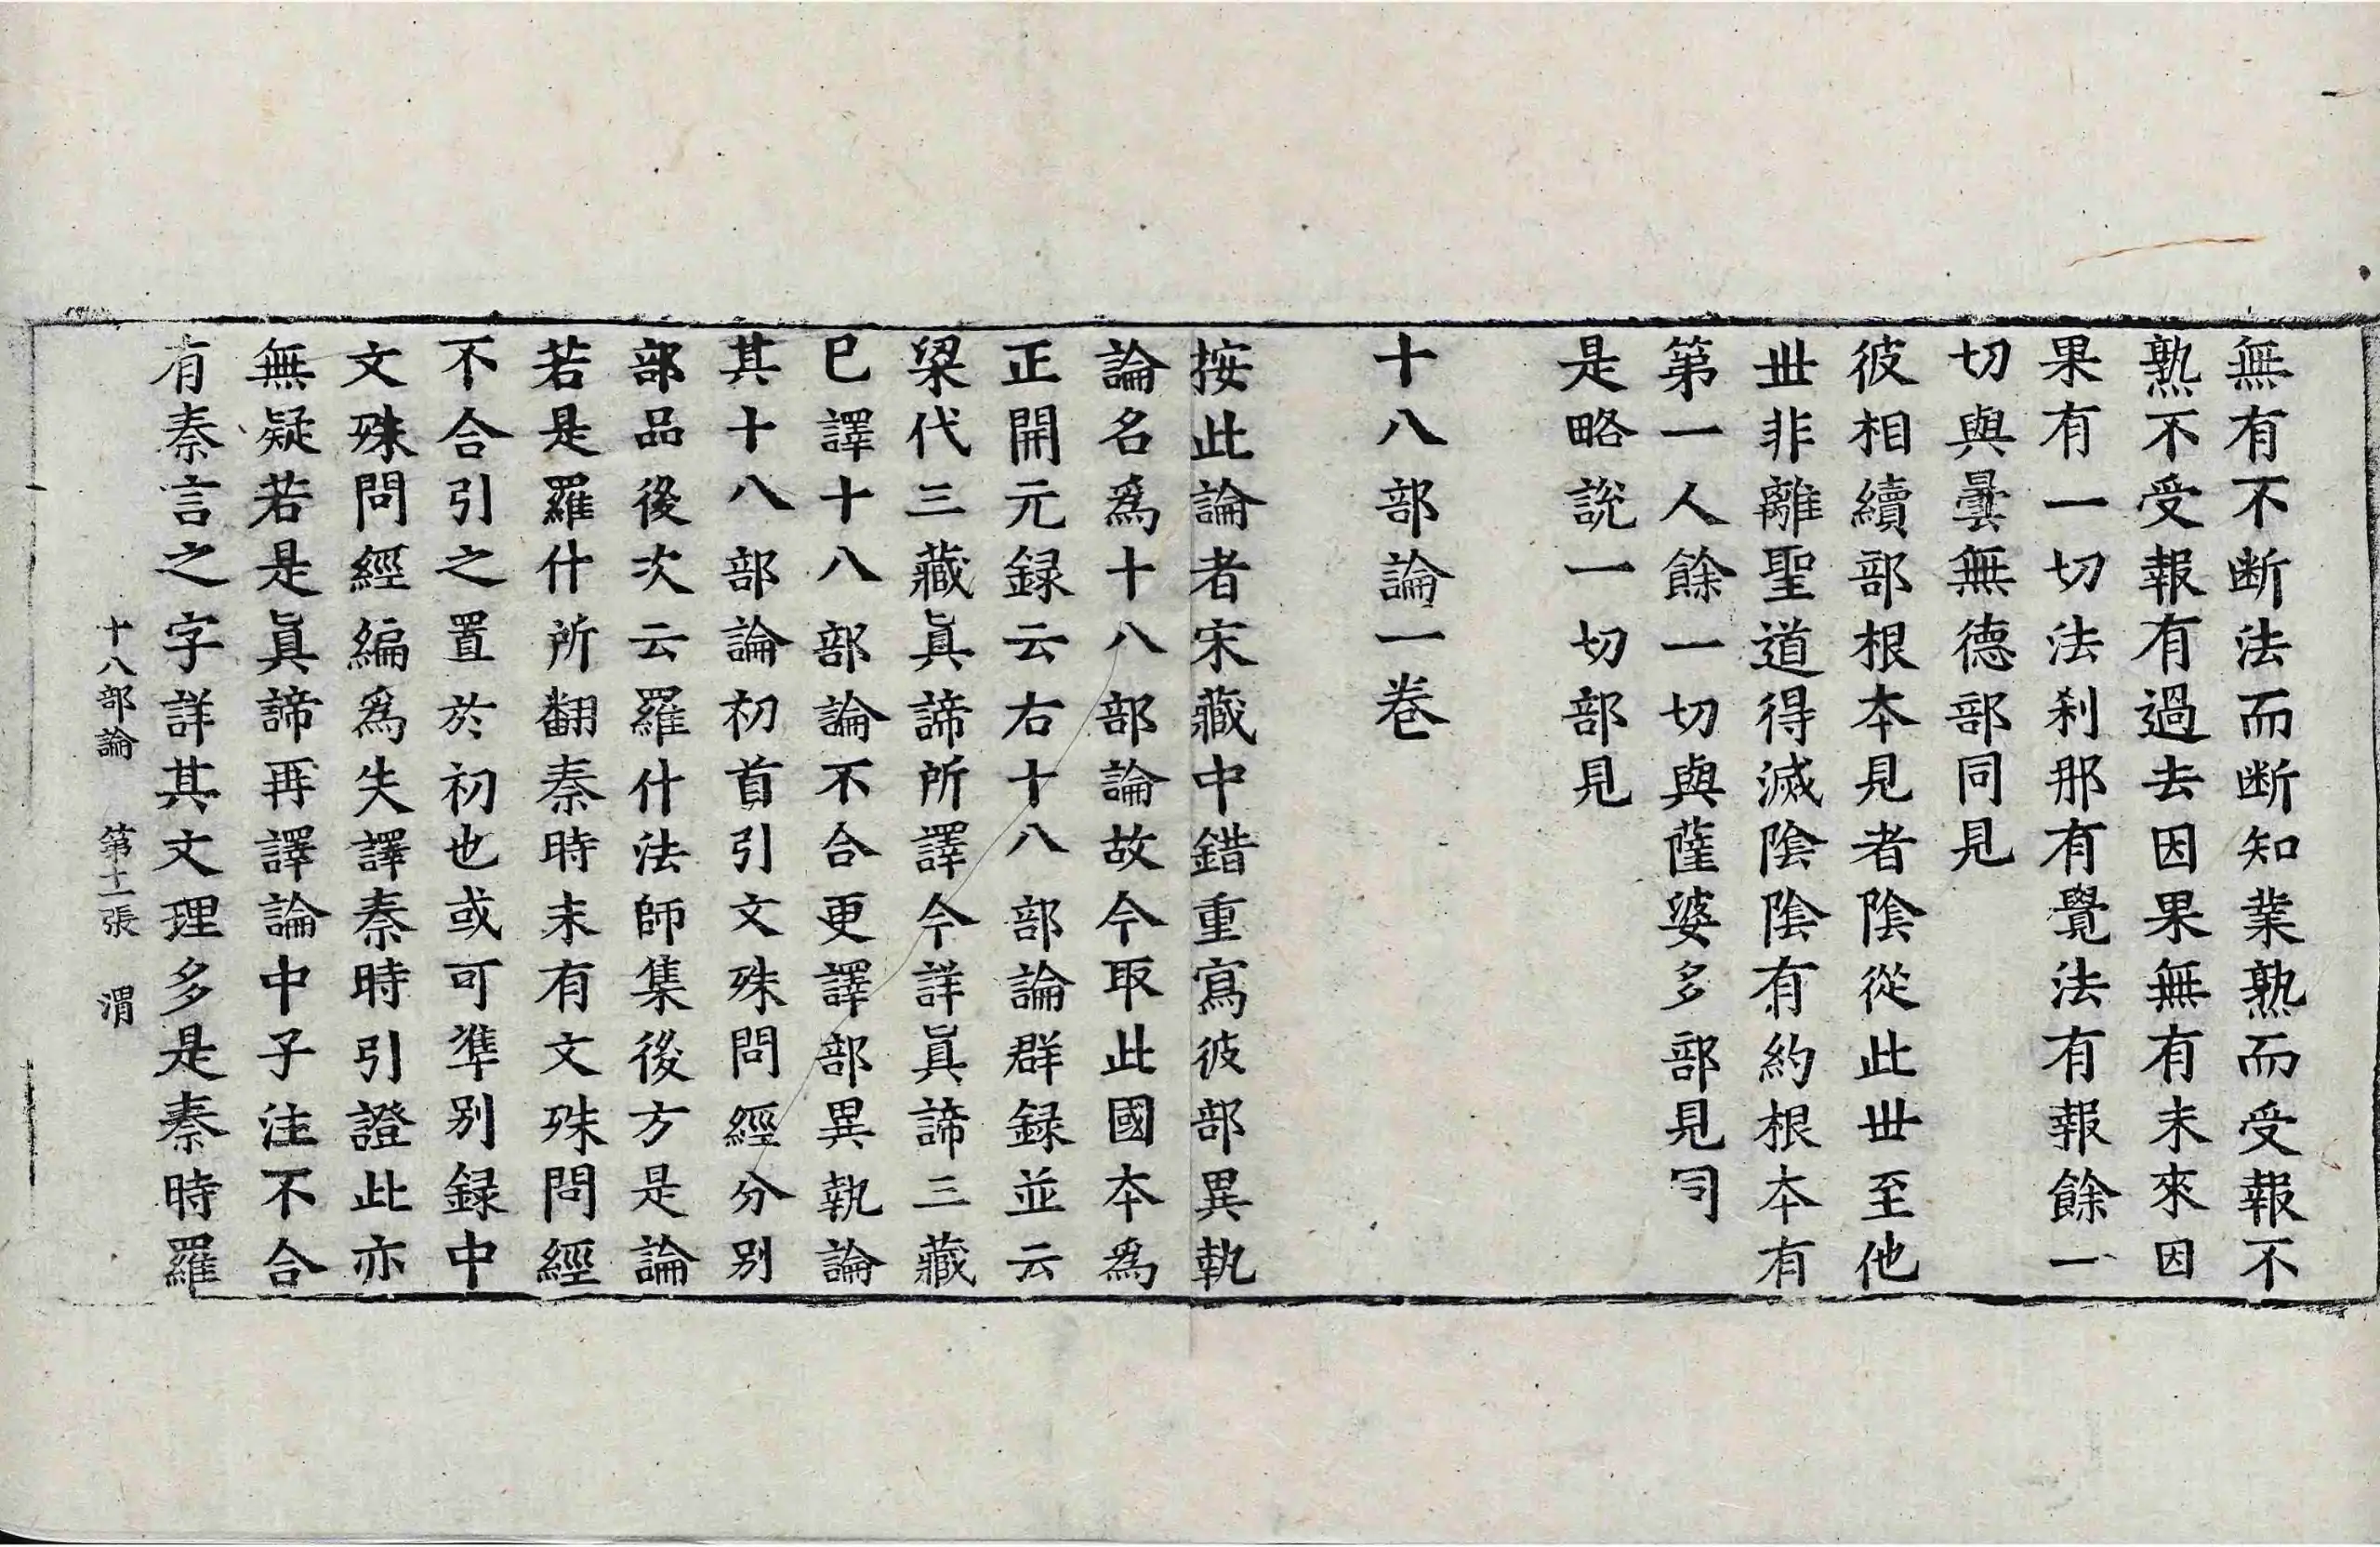 無有不断法而断知業熟而受報不
熟不受報有過去因果無有未來因
果有一切法刹那有覺法有報餘一
切與曇無德部同見
彼相續部根本見者陰從此丗至他
丗非離聖道得滅陰陰有約根本有
第一人餘一切與薩婆多部見司
是略說一切部見
十八部論一卷
按此論者宋藏中錯重寫彼部異執
論名爲十八部論故今取此國本爲
正開元録云右十八部論群録並云
梁代三藏眞諦所譯今詳眞諦三藏
已譯十八部論不合更譯部異執論
其十八部論初首引文殊問經分别
部品後次云羅什法師集後方是論
若是羅什所翻秦時未有文殊問經
不合引之置於初也或可準别録中
文殊問經編爲失譯秦時引證此亦
無疑若是眞諦再譯論中子注不合
有秦言之字詳其文理多是秦時羅
十八部論 第十一張 渭